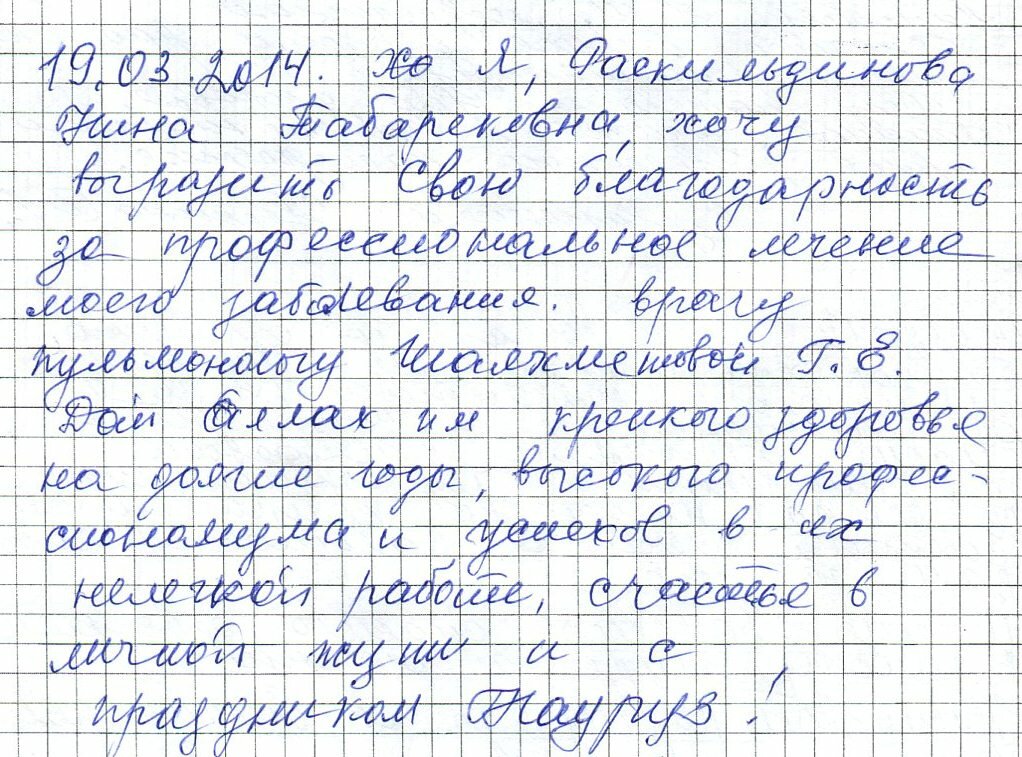 19.03.2014. Хо Я, Раскильдинова
Нина Табарековна, хочу
выразить Свою благодарность
за профессиональное лечение
моего заболевания. врачу
пульмонологу Шаяхметовой Г. Е.
Дай Аллах им крепкого здоровья
на долгие годы, высокого профес-
сионализма и успехов в их
нелегкой работе, счастье в
личной жизни и с
праздником Наурыз!